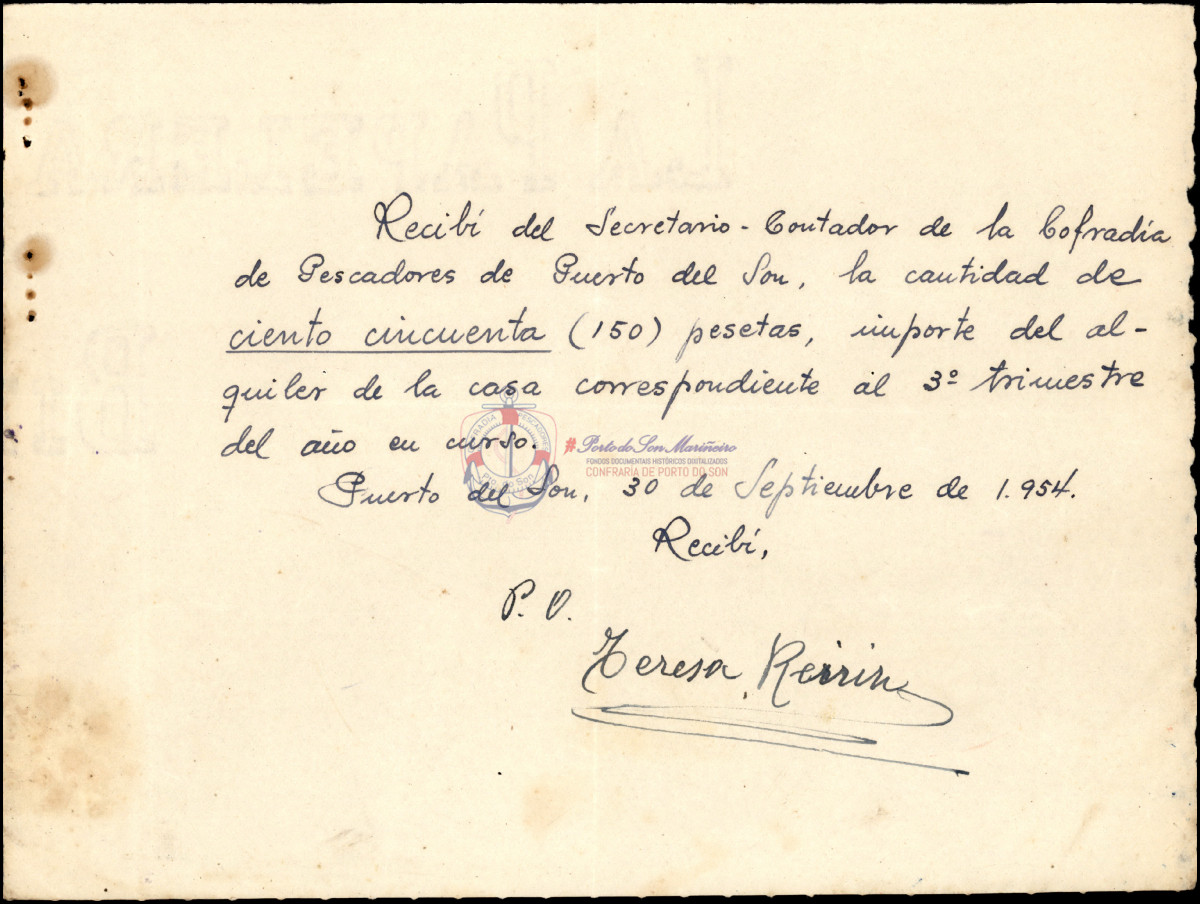 Recibí del Secretario-Contador de la Cofradía
de Pescadores de Puerto del Son, la cantidad de
ciento cincuenta (150) pesetas, importe del al-
quiler de la casa correspondiente al 3º trimestre
del año en curso.
#PortodoSonMariñeiro
FONDOS DOCUMENTAIS HISTÓRICOS DIXITALIZADOS
CONFRARÍA DE PORTO DO SON
Puerto del Son, 30 de Septiembre de 1.954.
Recibí,
P. O.
Teresa